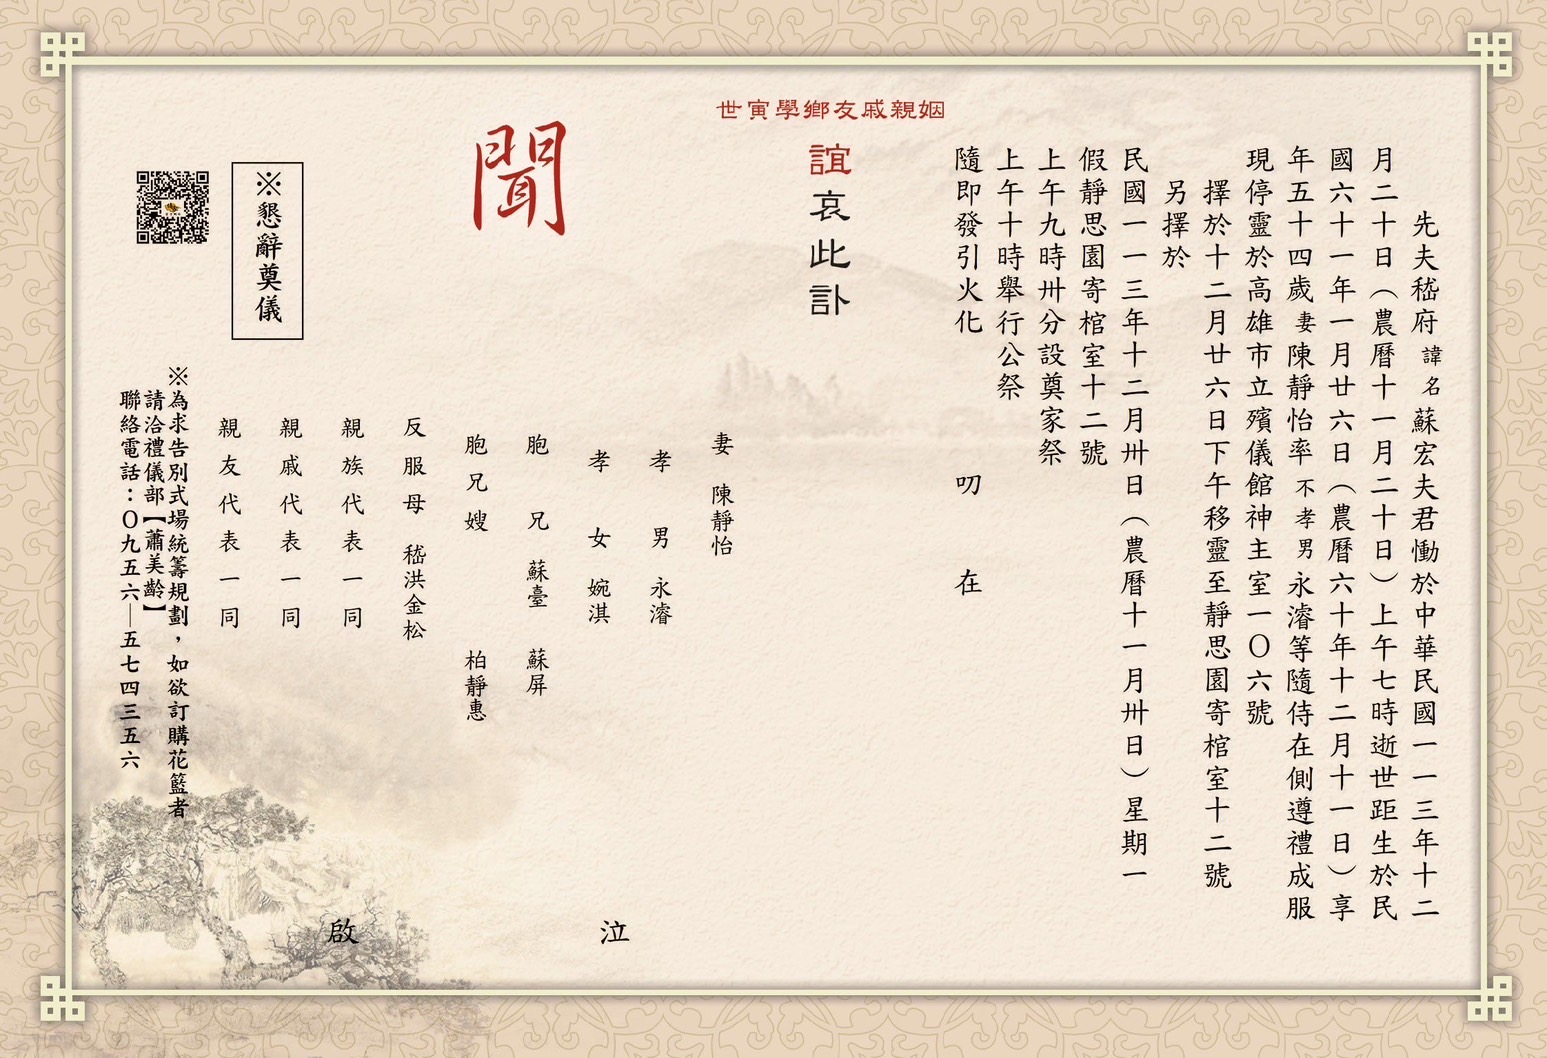 先夫嵇府諱名蘇宏夫君慟於中華民國一一三年十二
月二十日（農曆十一月二十日）上午七時逝世距生於民
國六十一年一月廿六日（農曆六十年十二月十一日）享
年五十四歲妻陳靜怡率不孝男永濬等隨侍在側遵禮成服
現停靈於高雄市立殯儀館神主室一〇六號
擇於十二月廿六日下午移靈至靜思園寄棺室十二號
另擇於
民國一一三年十二月卅日（農曆十一月卅日）星期一
假靜思園寄棺室十二號
上午九時卅分設奠家祭
上午十時舉行公祭
隨即發引火化 叨 在
姻親戚友鄉學寅世
誼哀此訃
聞
妻 陳靜怡
孝男 永濬
孝女 婉淇
胞兄 蘇臺 蘇屏
胞兄嫂 柏靜惠
反服母 嵇洪金松
親族代表一同
親戚代表一同
親友代表一同
泣
啟
※懇辭奠儀
※為求告別式場統籌規劃，如欲訂購花籃者
請洽禮儀部【蕭美齡】
聯絡電話：〇九五六—五七四三五六